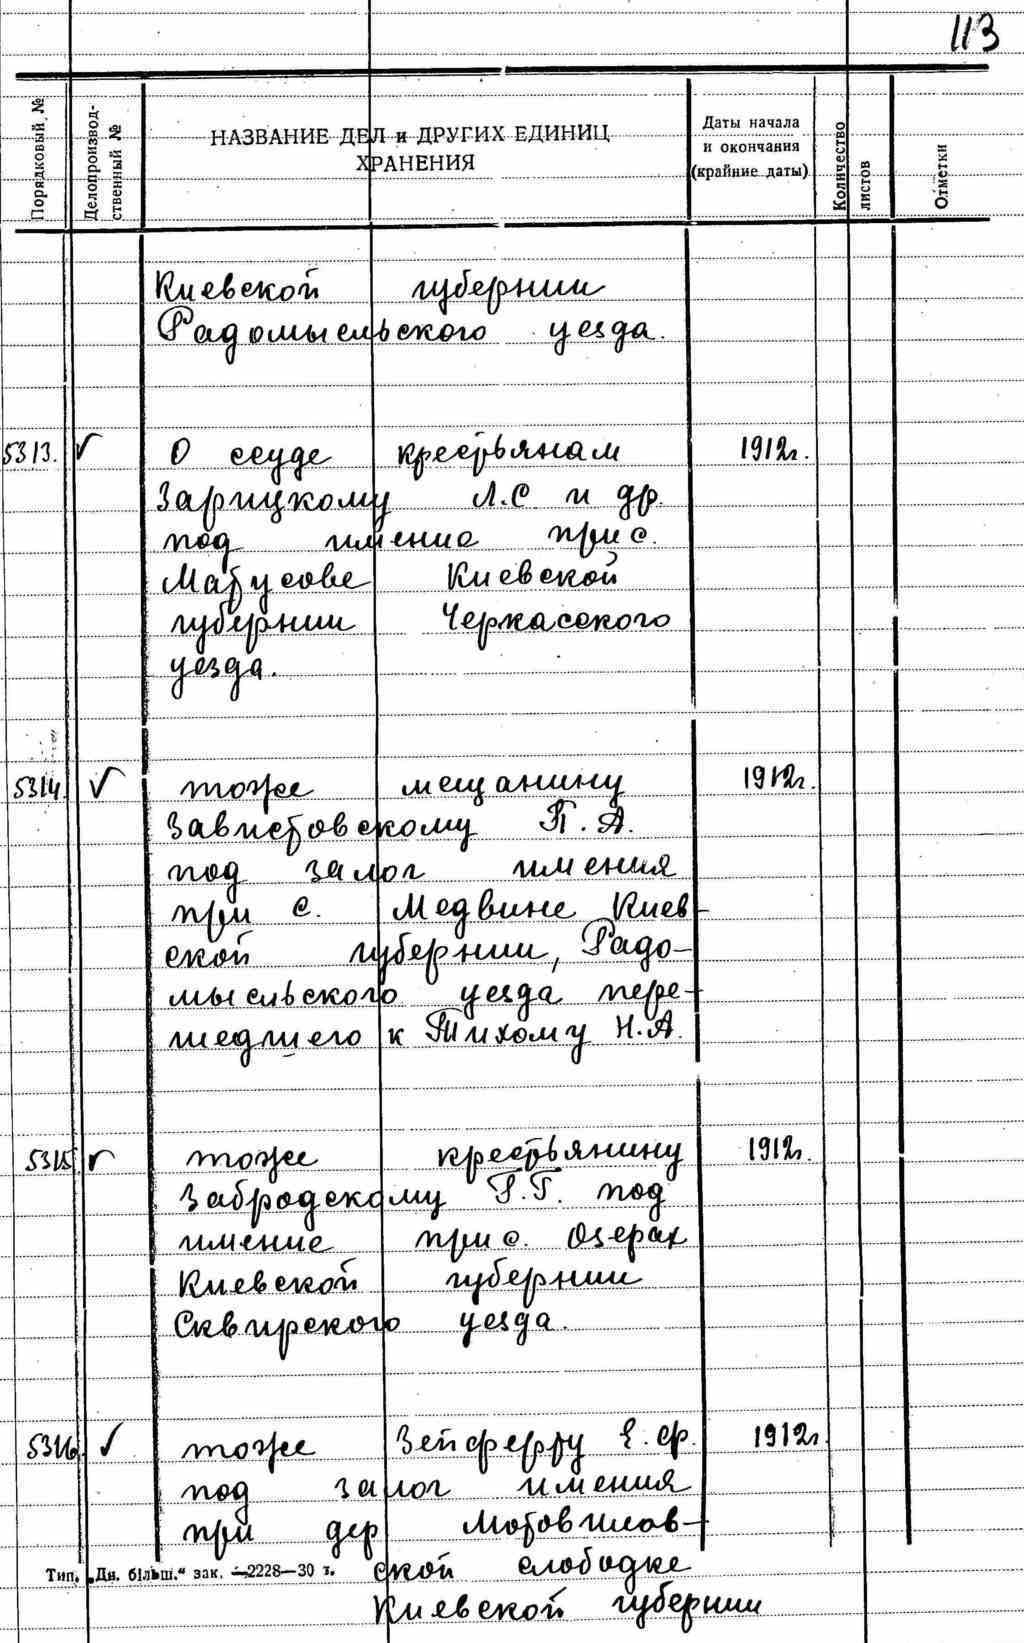 113
Порядковый №
Делопроизвод-
ственный №
НАЗВАНИЕ ДЕЛ и ДРУГИХ ЕДИНИЦ
ХРАНЕНИЯ
Даты начала
и окончания
(крайние даты)
Количество
листов
Отметки
Киевской губернии
Радомысельского уезда.
5313. ✓ О ссуде крестьянам 1912г.
Зарицкому Л.С и др.
под имение при с.
Матусове Киевской
губернии Черкасского
уезда.
5314. ✓ тоже мещанину 1912г.
Завистовскому П.А.
под залог имения
при с. Медвине Киев-
ской губернии, Радо-
мысельского уезда пере-
шедшего к Тихому Н.А.
5315 ✓ тоже крестьянину 1912г.
Забродскому Г.Г. под
имение при с. Озерах
Киевской губернии
Сквирского уезда.
5316. ✓ тоже Зейферту Е.Ф. 1912г.
под залог имения
при дер Мотовилов-
ской слободке
Киевской губернии
Тип. „Дн. більш." зак. —2228—30 т.